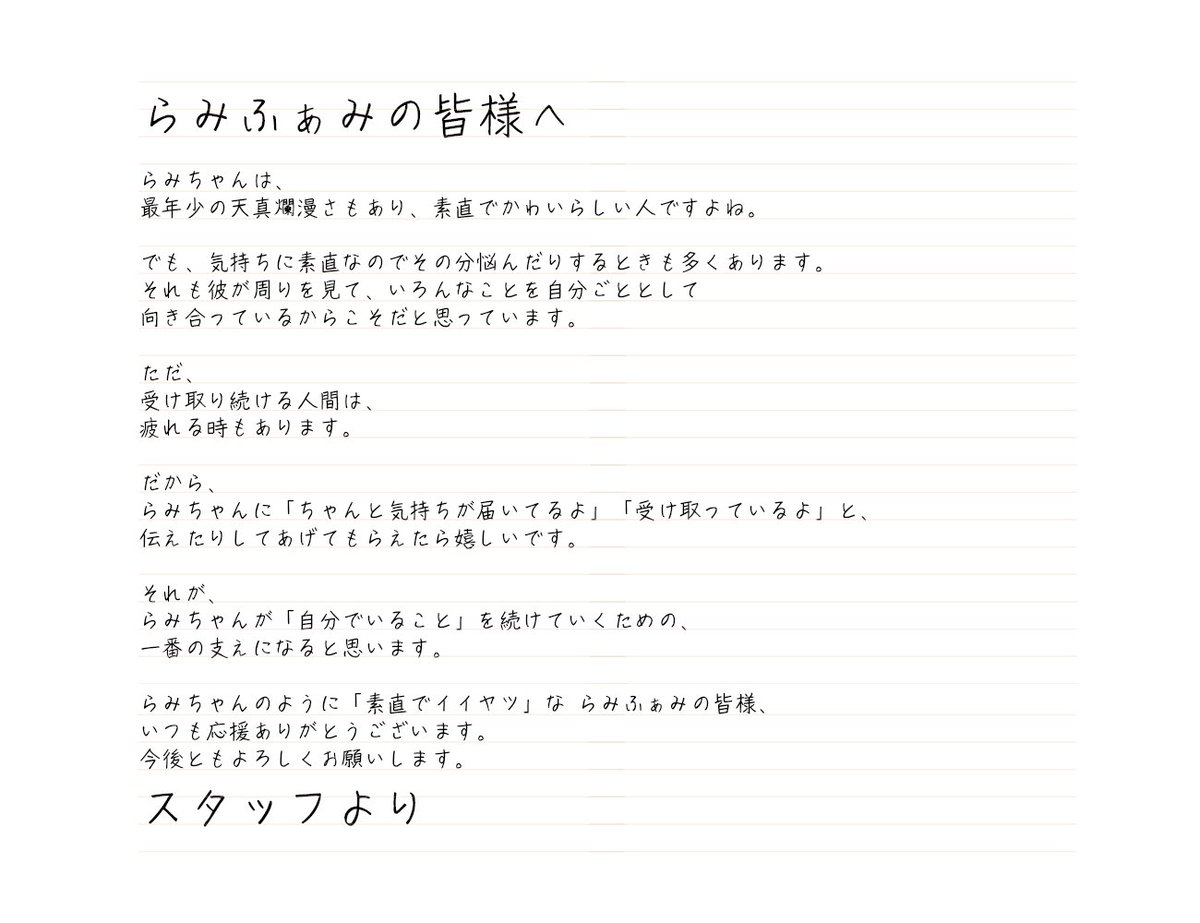 らみふぁみの皆様へ
らみちゃんは、
最年少の天真爛漫さもあり、素直でかわいらしい人ですよね。
でも、気持ちに素直なのでその分悩んだりするときも多くあります。
それも彼が周りを見て、いろんなことを自分ごととして
向き合っているからこそだと思っています。
ただ、
受け取り続ける人間は、
疲れる時もあります。
だから、
らみちゃんに「ちゃんと気持ちが届いてるよ」「受け取っているよ」と、
伝えたりしてあげてもらえたら嬉しいです。
それが、
らみちゃんが「自分でいること」を続けていくための、
一番の支えになると思います。
らみちゃんのように「素直でイイヤツ」な らみふぁみの皆様、
いつも応援ありがとうございます。
今後ともよろしくお願いします。
スタッフより